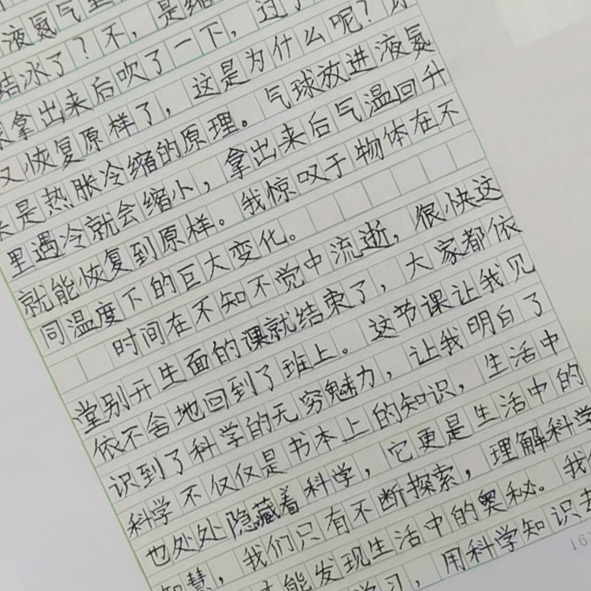 液氮气
结冰了？不，是缩
拿出来后吹了一下，过了
又恢复原样了，这是为什么呢？
是热胀冷缩的原理。气球放进液氮
里遇冷就会缩小，拿出来后气温回升
就能恢复到原样。我惊叹于物体在不
同温度下的巨大变化。
时间在不知不觉中流逝，很快这
堂别开生面的课就结束了，大家都依
依不舍地回到了班上。这节课让我见
识到了科学的无穷魅力，让我明白了
科学不仅仅是书本上的知识，生活中
也处处隐藏着科学，它更是生活中的
智慧，我们只有不断探索，理解科学
才能发现生活中的奥秘。我
学习，用科学知识去
16